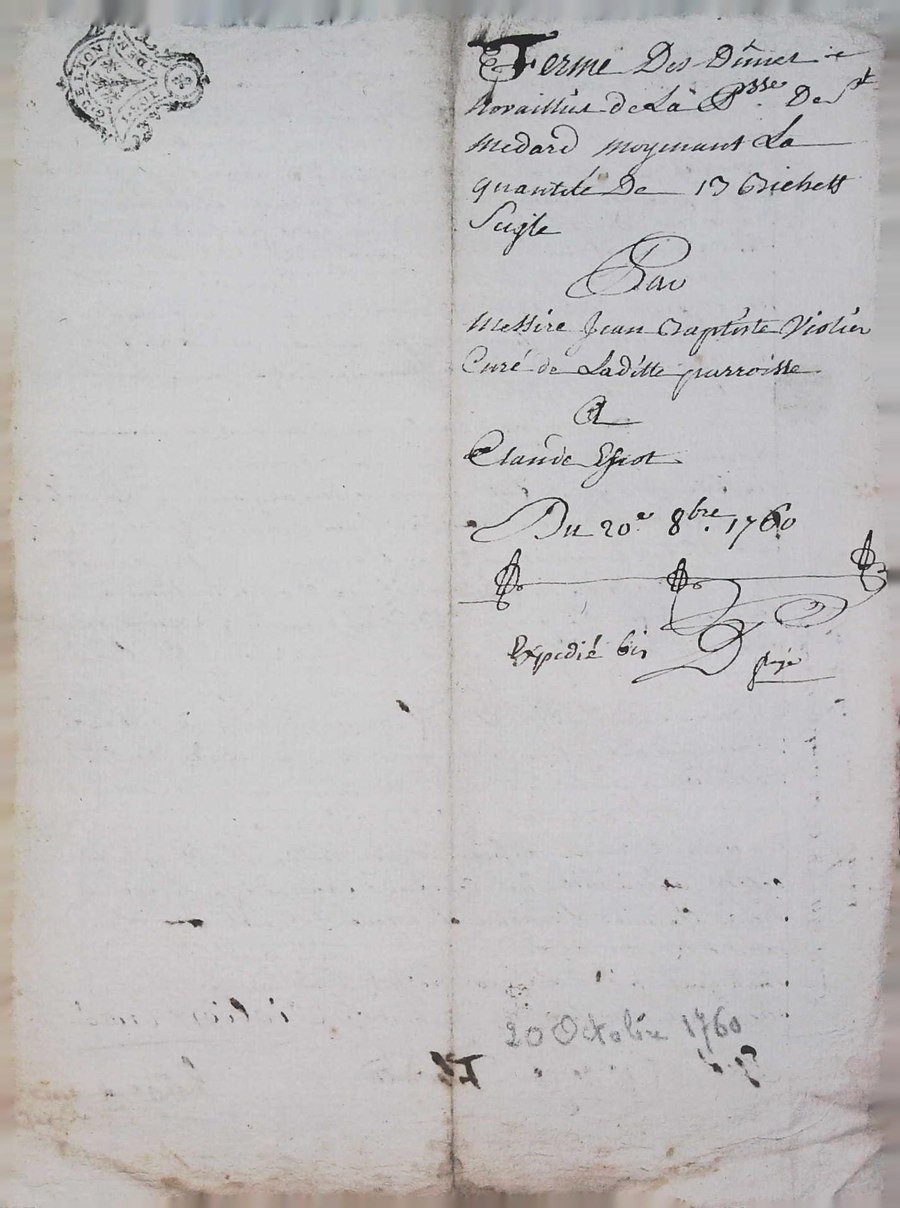 LYON
Ferme Des Dîmes et
Novailles de La P.sse De St
Medard moyenant La
quantité De 13 Bichetts
Seigle
Par
Messire Jean Baptiste Violier
Curé de Laditte parroisse
A
Claude
Du 20e 8bre 1760
Expedié bis
20 Octobre 1760